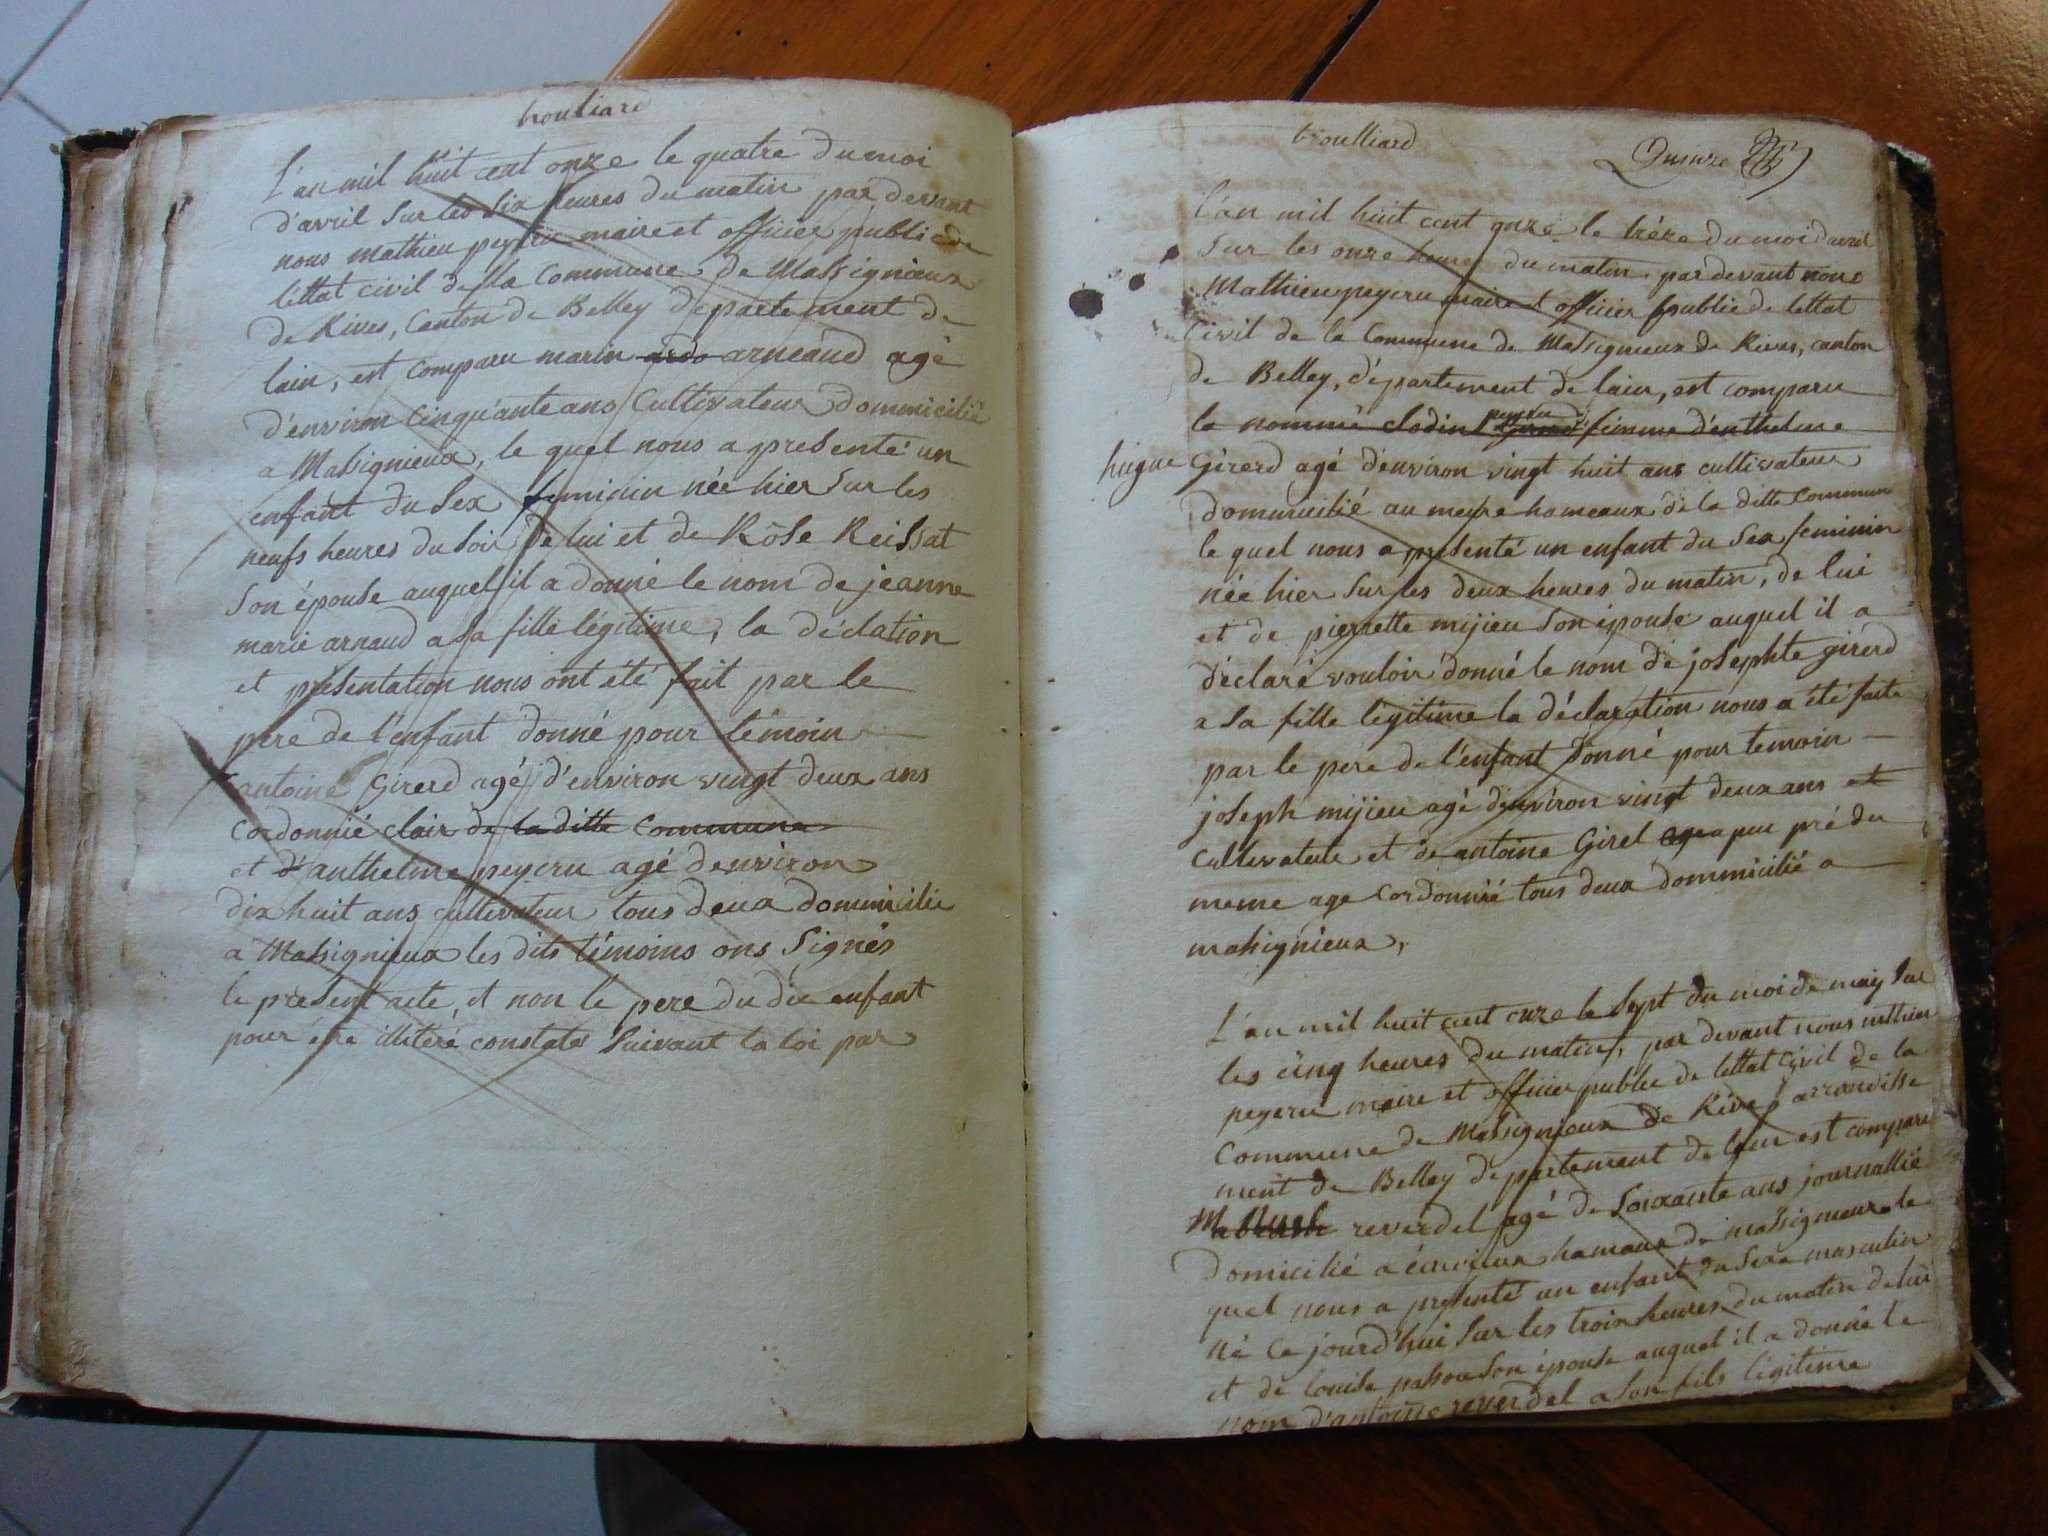 brouliard
L'an mil huit cent onze le quatre du moi
d'avril sur les six heures du matin par devant
nous mathieu peycru maire et officier public de
l'ettat civil de la Commune de Massignieux
de Rives, Canton de Belley departement de
lain, est comparu marin ardo arneaud agé
d'environ cinquante ans Cultivateur dommicilié
a Massignieux, le quel nous a presenté un
enfant du Sex feminin née hier sur les
neufs heures du soir de lui et de Rose Reissat
Son épouse auquel il a donné le nom de jeanne
marie arnaud a sa fille légitime, la déclation
et présentation nous ont été fait par le
pere de l'enfant donné pour témoin
antoine Girerd agé d'environ vingt deux ans
Cordonnié clair de la ditte Commune
et d'anthelme peycru agé denviron
dix huit ans cultivateur tous deux dommicilie
a Massignieux les dits témoins ons Signés
le present acte, et non le pere du dit enfant
pour être illitéré constaté suivant la loi par
broulliard
Quinze
L'an mil huit cent onze le trèze du moi d'avril
Sur les onze heures du matin par devant nous
Mathieu peycru maire et officier public de lettat
Civil de la Commune de Massignieux de Rives, canton
de Belley, département de lain, est comparu
la nommé clodine peycru femme d'enthelme
hugue Girerd agé d'environ vingt huit ans cultivateur
dommicilié au meme hameaux de la ditte Commun
le quel nous a présenté un enfant du Sex feminin
née hier sur les deux heures du matin, de lui
et de pierrette mijieu son épouse auquel il a
déclaré vouloir donné le nom de josephte girerd
a sa fille légitime la déclaration nous a été faite
par le père de l'enfant donné pour temoin
joseph mijieu agé d'environ vingt deux ans et
cultivateur et de antoine Girel a peu pré du
meme age cordonnié tous deux dommicilié a
massignieux,
L'an mil huit cent onze le sept du moi de may sur
les cinq heures du matin, par devant nous mathieu
peycru maire et officier public de lettat civil de la
Commune de Massignieux de Rives arrondisse
ment de Belley departement de lain est comparu
reverdel agé de soixante ans journallié
domicilié a écurieux hamaux de massignieux le
quel nous a présenté un enfant du sexe masculin
né ce jourd'hui sur les trois heures du matin de lui
et de louise passou son épouse auquel il a donné le
nom d'antoine reverdel a son fils légitime